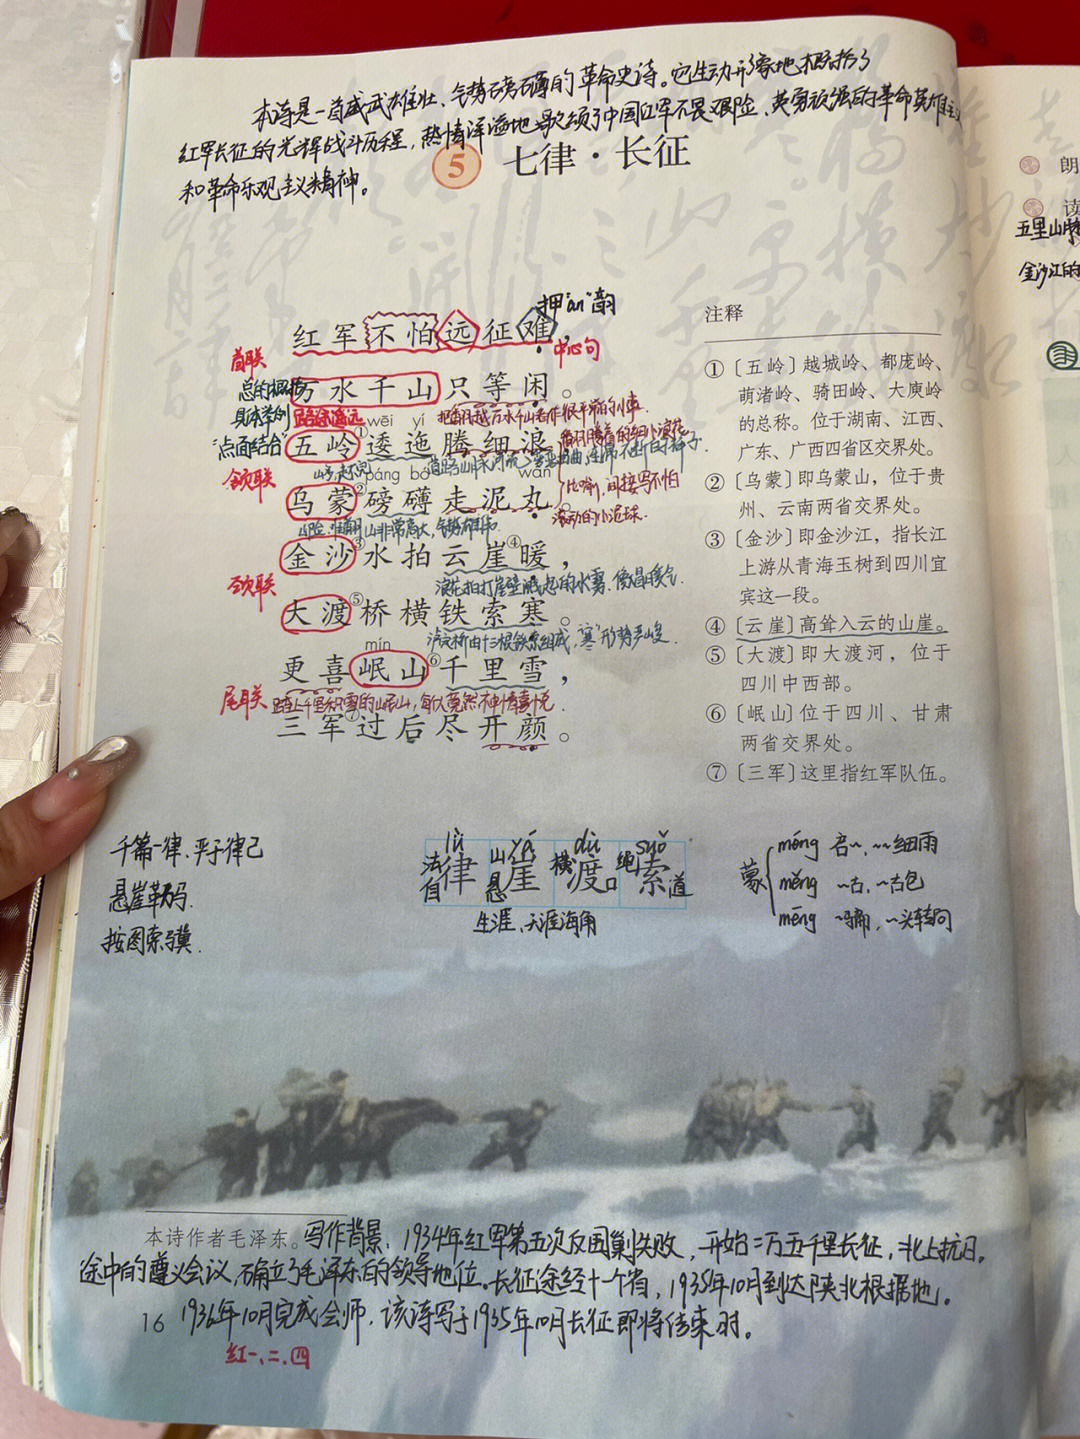 本诗是一首威武雄壮、气势磅礴的革命史诗。它生动形象地概括了
红军长征的光辉战斗历程，热情洋溢地歌颂了中国红军不畏艰险、英勇顽强的革命英雄主义
和革命乐观主义精神。
5 七律·长征
押"an"韵
红军不怕远征难，
首联
中心句
万水千山只等闲。
总的概括
具体举例
路途遥远
wēi yí
"点面结合"
五岭①逶迤腾细浪，
颔联
páng bó
wán
乌蒙②磅礴走泥丸。
滚动的小泥球
金沙③水拍云崖④暖，
颈联
浪花拍打崖壁溅起的水雾，像冒暖气.
大渡⑤桥横铁索寒。
mín
泸定桥由十三根铁索组成，"寒"形势严峻.
更喜岷山⑥千里雪，
尾联
踏上千里积雪的岷山，每个人竟然不由得喜悦.
三军⑦过后尽开颜。
注释
①〔五岭〕越城岭、都庞岭、
萌渚岭、骑田岭、大庾岭
的总称。位于湖南、江西、
广东、广西四省区交界处。
②〔乌蒙〕即乌蒙山，位于贵
州、云南两省交界处。
③〔金沙〕即金沙江，指长江
上游从青海玉树到四川宜
宾这一段。
④〔云崖〕高耸入云的山崖。
⑤〔大渡〕即大渡河，位于
四川中西部。
⑥〔岷山〕位于四川、甘肃
两省交界处。
⑦〔三军〕这里指红军队伍。
千篇一律、严于律己
悬崖勒马.
按图索骥.
lǜ yá dù suǒ
法 律 山 崖 横 渡 绳 索
自 悬 口 道
生涯、天涯海角
蒙
méng 启~、~~细雨
měng ~古、~古包
mēng ~骗、~头转向
本诗作者毛泽东。写作背景：1934年红军第五次反围剿失败，开始二万五千里长征，北上抗日。
途中的遵义会议，确立了毛泽东的领导地位。长征途经十一个省，1935年10月到达陕北根据地。
1936年10月完成会师，该诗写于1935年10月长征即将结束时。
16
红一、二、四
朗
读
五里山
金沙江的